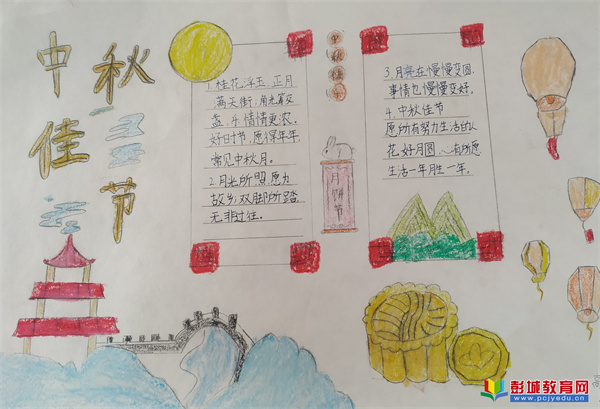 中秋
佳节
1.桂花浮玉,正月
满天街,月光算交
盏,斗情情更浓。
好日时节,愿得年年,
常见中秋月。
2.月光所照愿为
故乡,双脚所踏,
无非过往。
中秋佳节
月饼节
3.月亮在慢慢变圆,
事情也慢慢变好,
4.中秋佳节
愿所有努力生活的人
花好月圆,心有所愿
生活一年胜一年。
彭城教育网
www.pcjyedu.cn